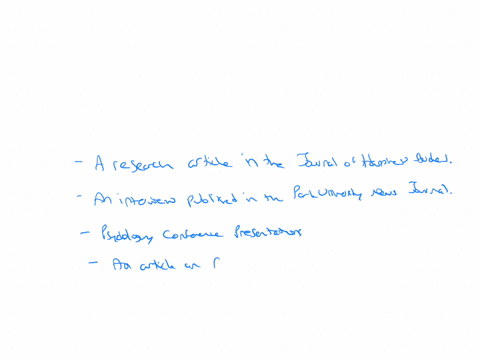 - A research article in the Journal of Happiness Studies.
- An interview published in the Park University news Journal.
- Psychology Conference Presentations
- An article on